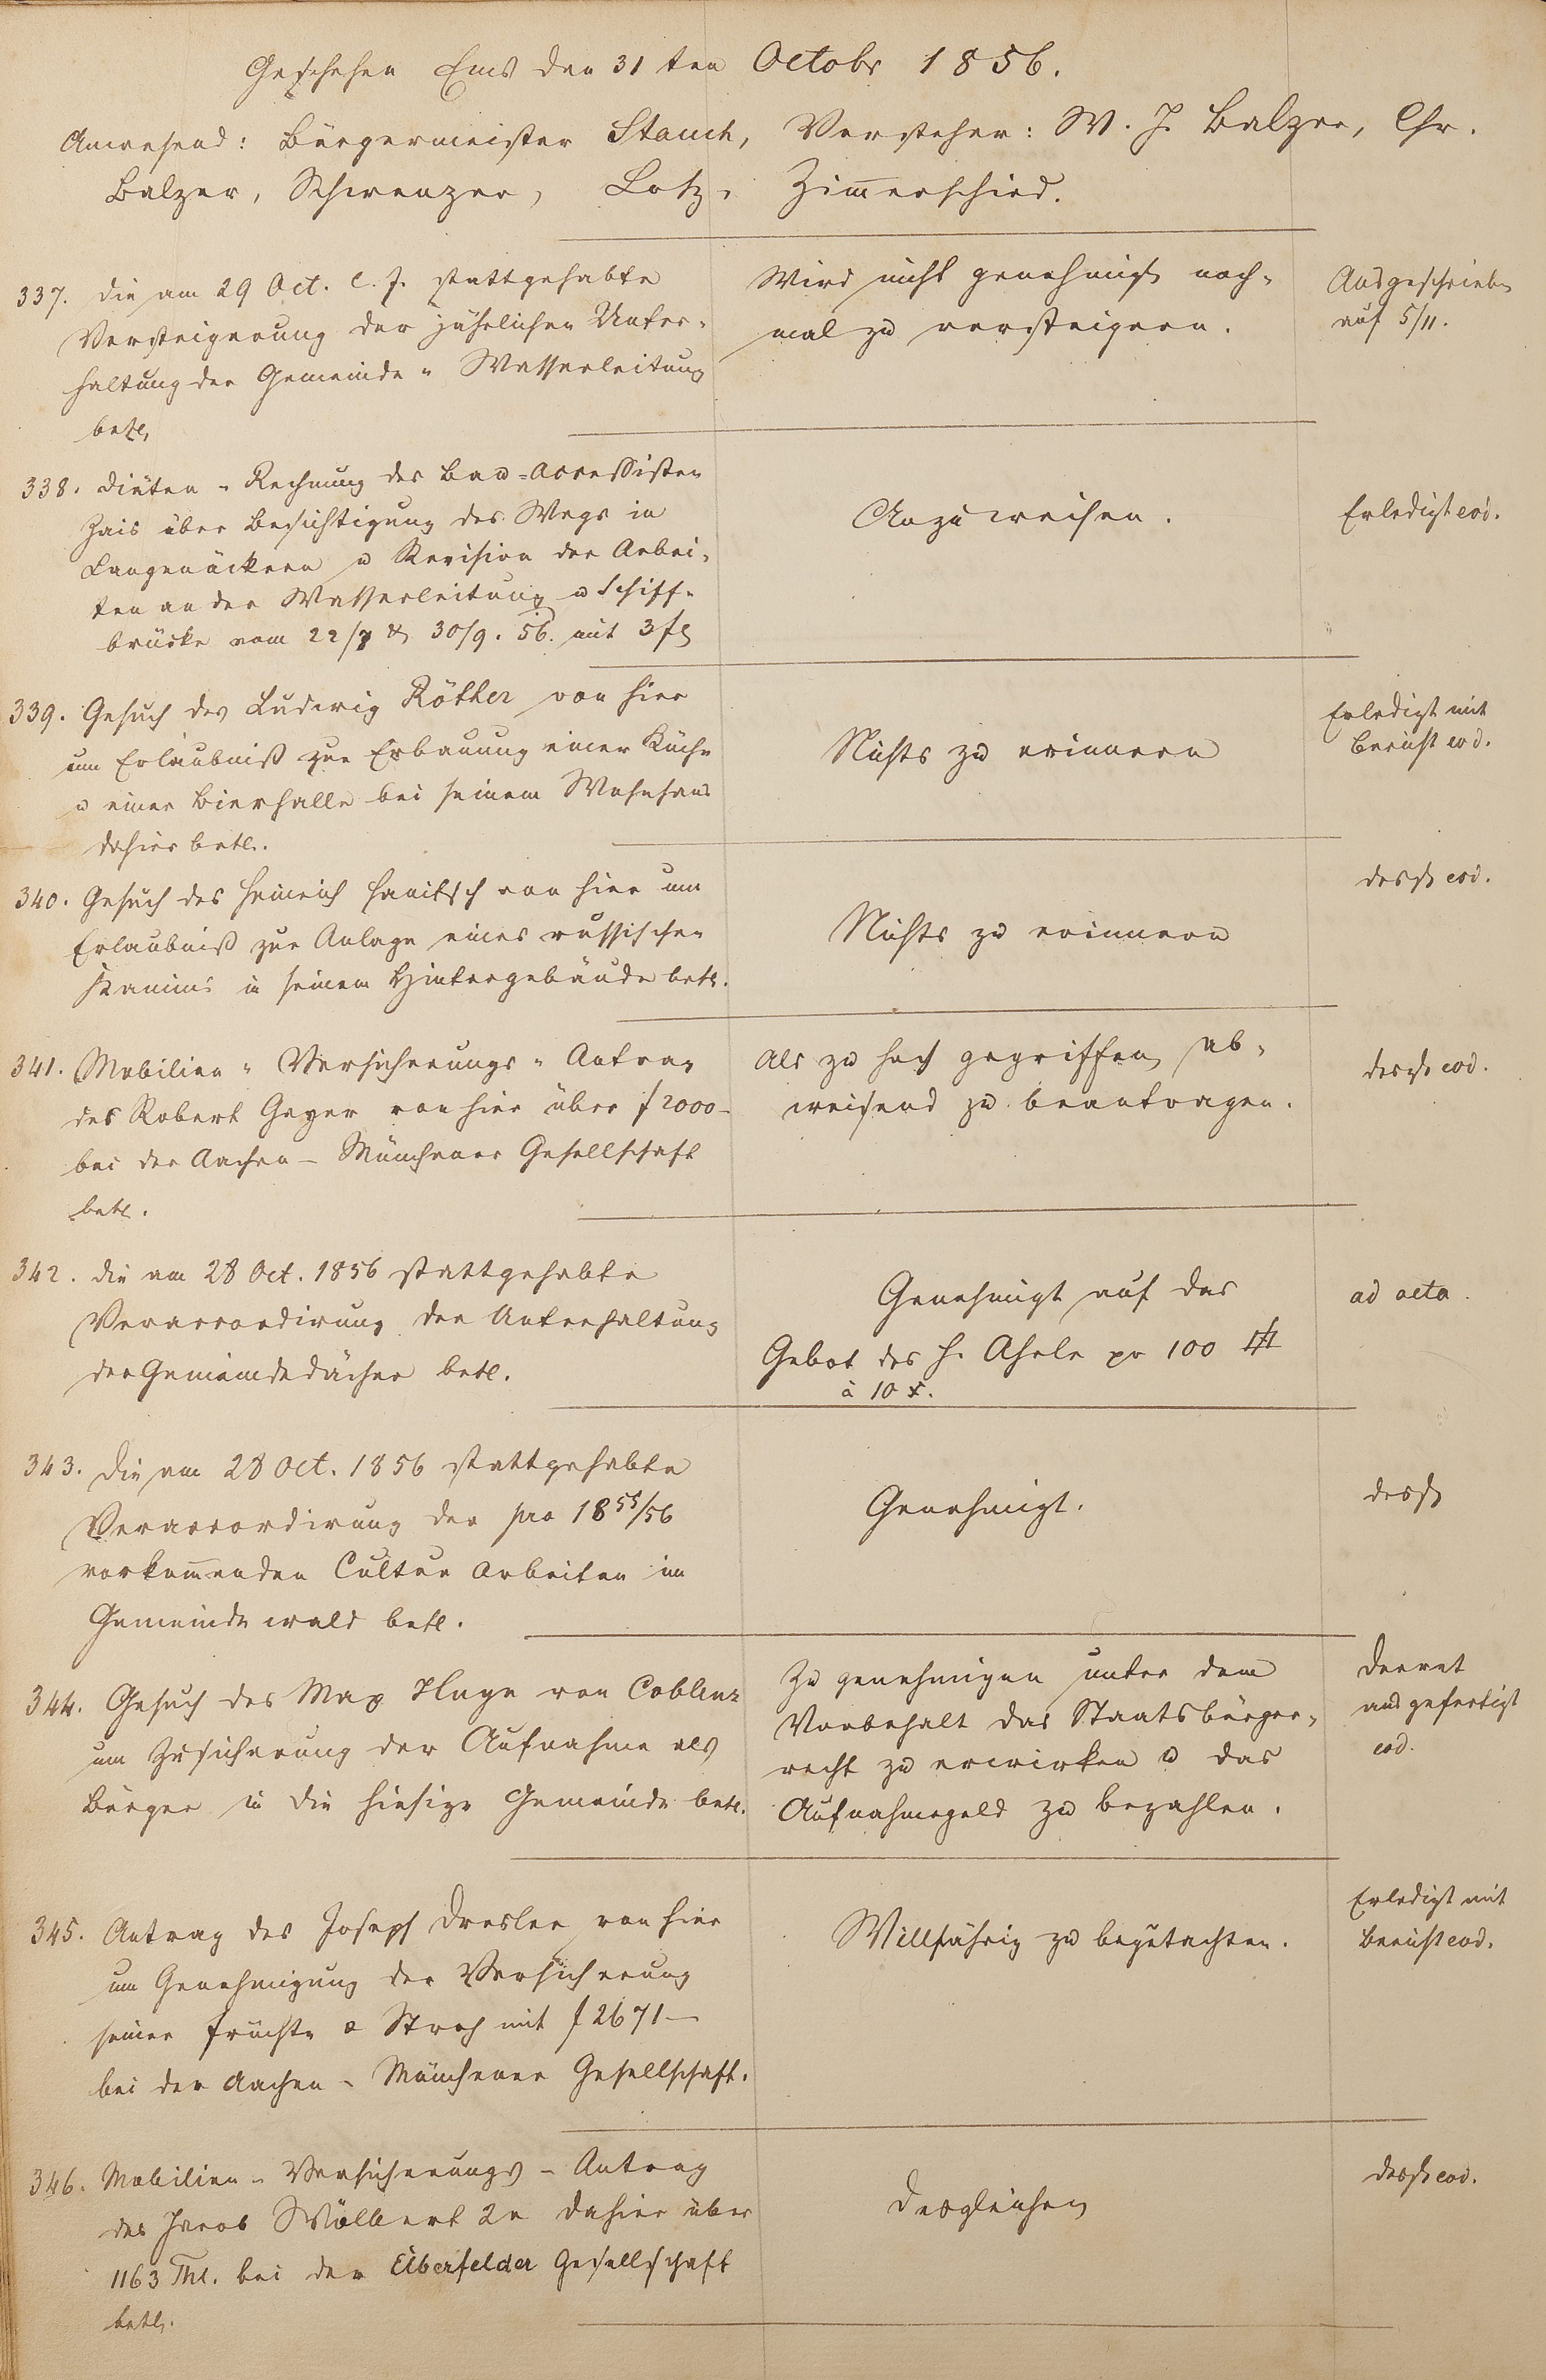 Geschehen Ems den 31ten Octobr 1856.
Anwesend: Bürgermeister Stauch, Vorsteher: W. J. Balzer, Chr.
Balzer, Schwenzer, Lotz, Zimerschied.
337. Die am 29 Oct. l. J. stattgehabte
Versteigerung der jährlichen Unter-
haltung der Gemeinde-Wasserleitung
betr.
Wird nicht genehmigt noch-
mal zu versteigern.
Ausgeschrieben
auf 5/11.
338. Diäten-Rechnung des Bau-Accessisten
Zais über Besichtigung des Wegs in
Langenäckern u Revision der Arbei-
ten an der Wasserleitung u Schiff-
brücke vom 22/7 & 30/9. 56. mit 3 fl
Anzuweisen.
Erledigt eod.
339. Gesuch des Ludwig Röther von hier
um Erlaubniß zur Erbauung einer Küche
u einer Bierhalle bei seinem Wohnhaus
dahier betr.
Nichts zu erinnern
Erledigt mit
Bericht eod.
340. Gesuch des Heinrich Hanitsch von hier um
Erlaubniß zur Anlage eines russischen
Kamins in seinem Hintergebäude betr.
Nichts zu erinnern
desgl. eod.
341. Mobilien-Versicherungs-Antrag
des Robert Geyer von hier über f 2000–
bei der Aachen-Münchener Gesellschaft
betr.
Als zu hoch gegriffen, ab-
weisend zu beantragen.
desgl. eod.
342. Die am 28 Oct. 1856 stattgehabte
Veraccordirung der Unterhaltung
der Gemeindedächer betr.
Genehmigt auf das
Gebot des H. Ahele pr 100 #
à 10 x.
ad acta.
343. Die am 28 Oct. 1856 stattgehabte
Veraccordirung der pro 1855/56
vorkomenden Cultur Arbeiten im
Gemeindewald betr.
Genehmigt.
desgl.
344. Gesuch des Max Huge von Coblenz
um Zusicherung der Aufnahme als
Bürger in die hiesige Gemeinde betr.
Zu genehmigen unter dem
Vorbehalt das Staatsbürger-
recht zu erwirken u das
Aufnahmegeld zu bezahlen.
Decret
ausgefertigt
eod.
345. Antrag des Joseph Dresler von hier
um Genehmigung der Versicherung
seiner Früchte & Stroh mit f 2671–
bei der Aachen-Münchener Gesellschaft.
Willfährig zu begutachten.
Erledigt mit
Bericht eod.
346. Mobilien-Versicherungs-Antrag
des Jacob Wölbert 2r dahier über
1163 Thl. bei der Elberfelder Gesellschaft
betr.
Desgleichen
desgl. eod.